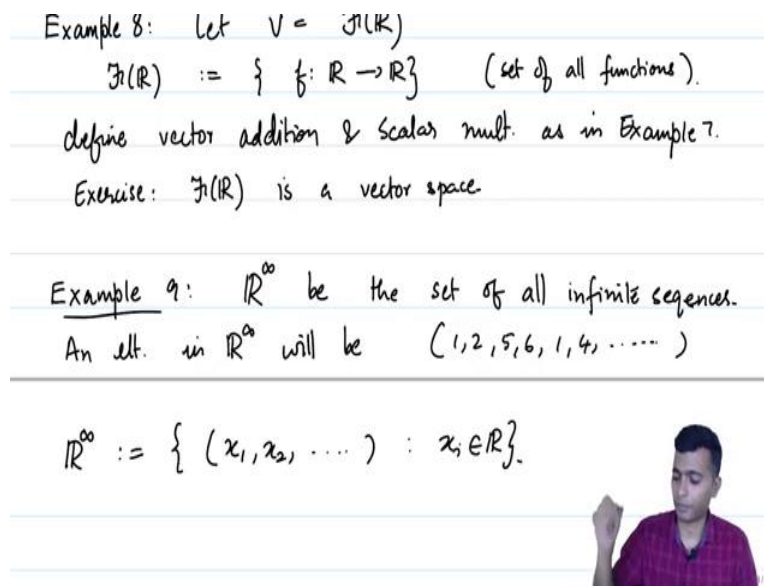 Example 8: Let V = 𝓕(ℝ)
𝓕(ℝ) := { f: ℝ → ℝ} (set of all functions).
define vector addition & Scalar mult. as in Example 7.
Exercise: 𝓕(ℝ) is a vector space.
Example 9: ℝ^∞ be the set of all infinite seqences.
An elt. in ℝ^∞ will be (1, 2, 5, 6, 1, 4, ......)
ℝ^∞ := { (x₁, x₂, ....) : xᵢ ∈ ℝ}.